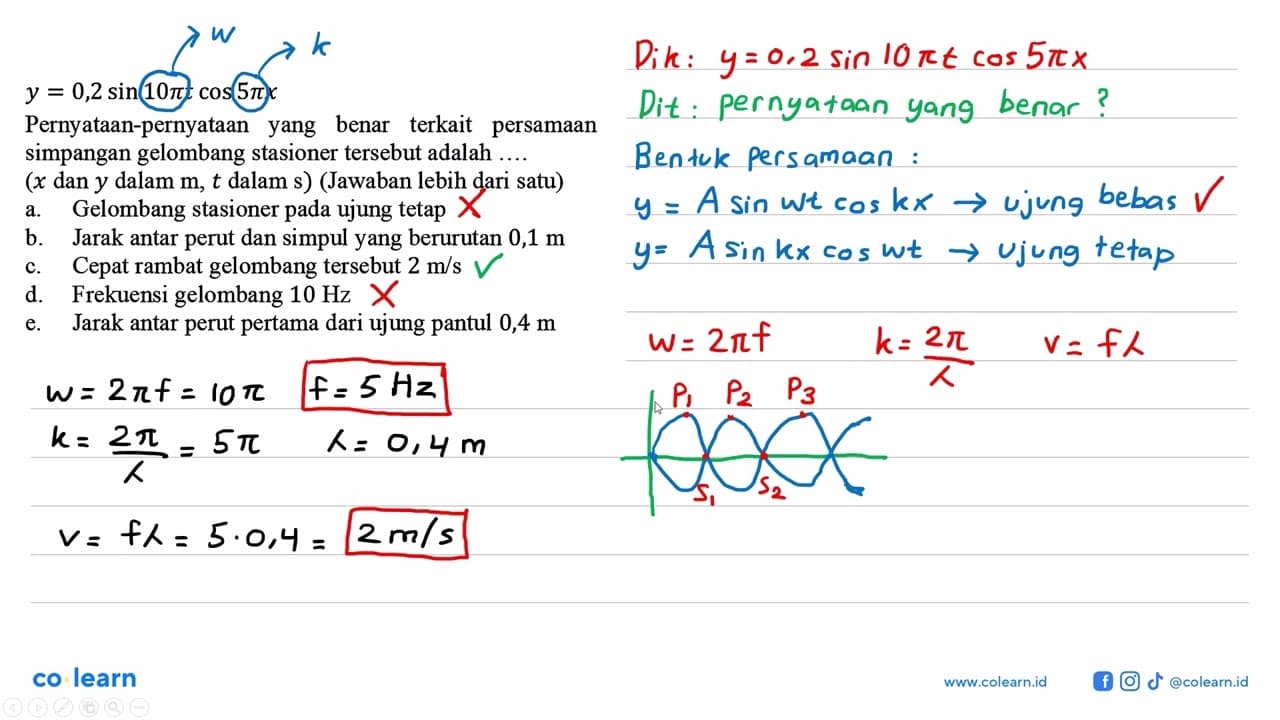 w
k
y = 0,2 sin 10πt cos 5πx
Pernyataan-pernyataan yang benar terkait persamaan
simpangan gelombang stasioner tersebut adalah ....
(x dan y dalam m, t dalam s) (Jawaban lebih dari satu)
a. Gelombang stasioner pada ujung tetap ✗
b. Jarak antar perut dan simpul yang berurutan 0,1 m
c. Cepat rambat gelombang tersebut 2 m/s ✓
d. Frekuensi gelombang 10 Hz ✗
e. Jarak antar perut pertama dari ujung pantul 0,4 m
w = 2πf = 10π f = 5 Hz
k = 2π/λ = 5π λ = 0,4 m
v = fλ = 5·0,4 = 2 m/s
Dik: y = 0.2 sin 10πt cos 5πx
Dit: pernyataan yang benar?
Bentuk persamaan :
y = A sin wt cos kx → ujung bebas ✓
y= A sin kx cos wt → ujung tetap
w = 2πf k = 2π/λ v = fλ
P1 P2 P3
S1 S2
co learn
www.colearn.id
@colearn.id